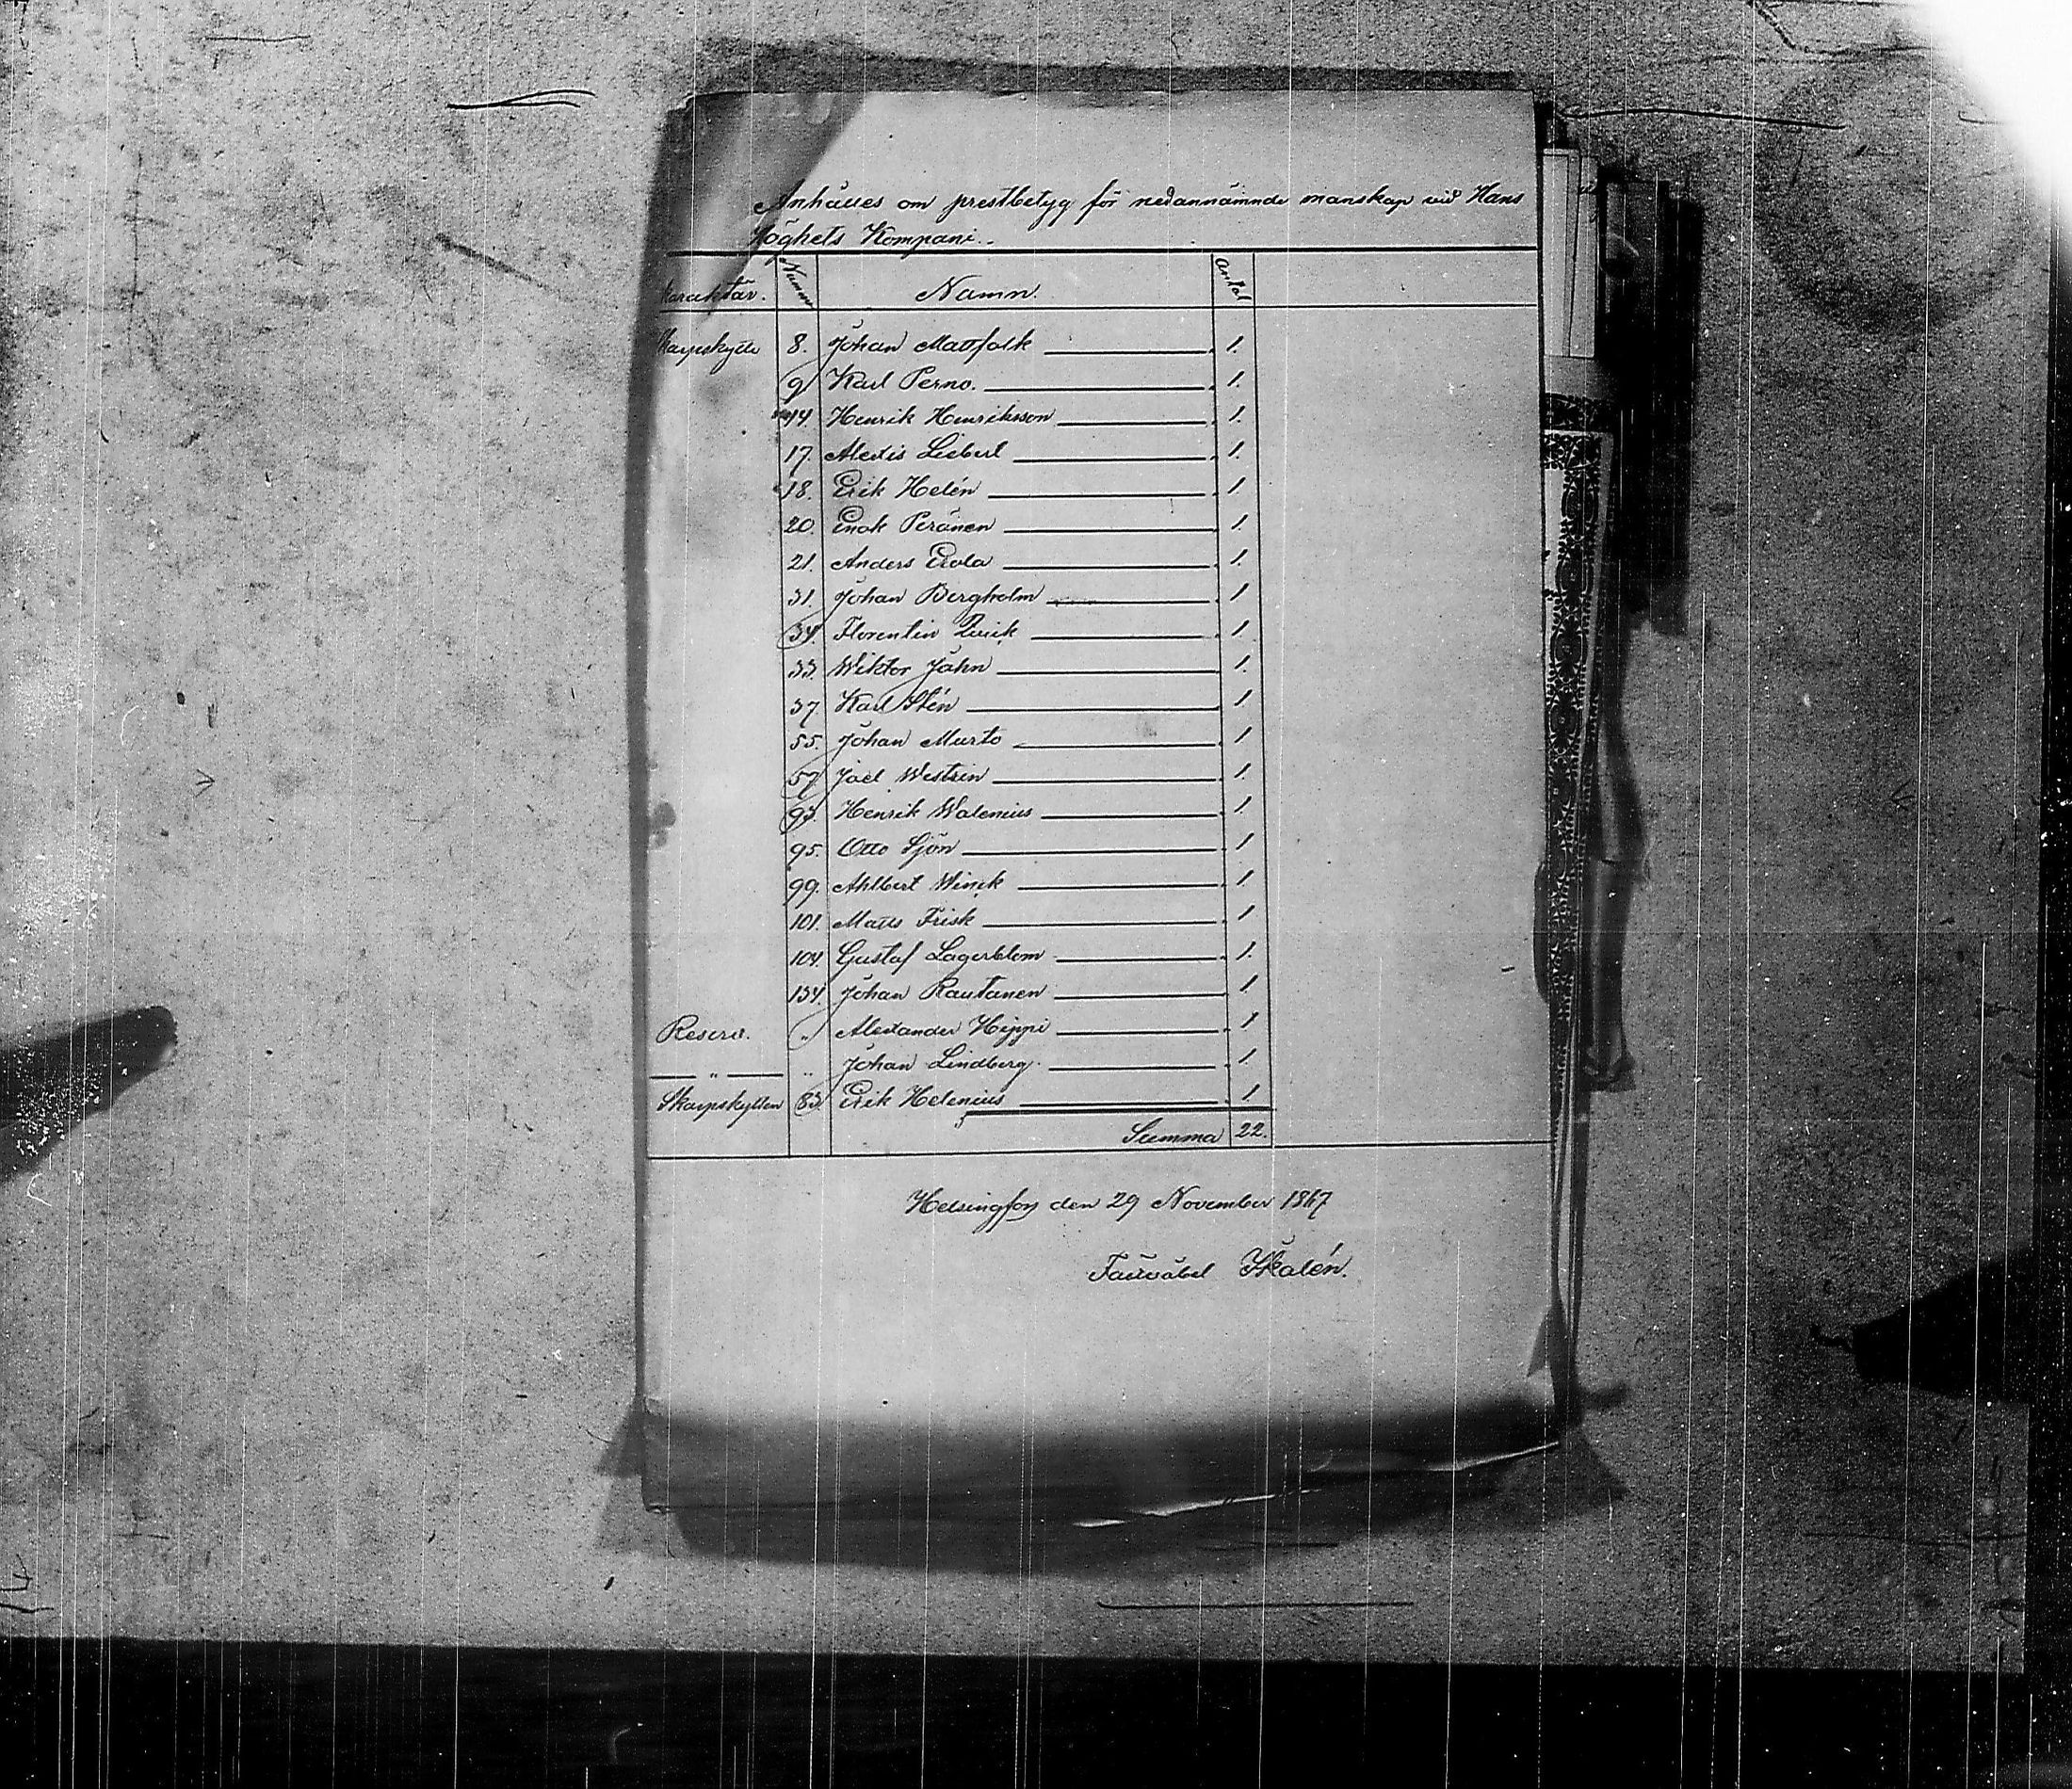 Anhålles om prestbetyg för nedannämnde manskap vid Hans
Höghets Kompani.
Karaktär. Numm Namn. Antal
Skarpskytte 8. Johan Matfolk 1.
9 Karl Perno. 1.
14 Henrik Henriksson 1.
17. Alexis Liebert 1.
18. Erik Helén 1.
20. Enok Peränen 1.
21. Anders Erola 1.
31. Johan Bergholm 1
34. Florentin Qvick 1
33. Wiktor Jahn 1.
37 Karl Stén 1
55. Johan Murto 1
57 Joel Westrin 1.
93. Henrik Walenius 1.
95. Otto Sjön 1
99. Ahlbert Winck 1
101. Matts Frisk 1
104. Gustaf Lagerblom 1.
134. Johan Rautanen 1
Reserv. " Alexander Hippi 1
— " — " Johan Lindberg. 1.
Skarpskytten 83. Erik Helenius 1
Summa 22.
Helsingfors den 29 November 1867
Fältväbel Skalén.